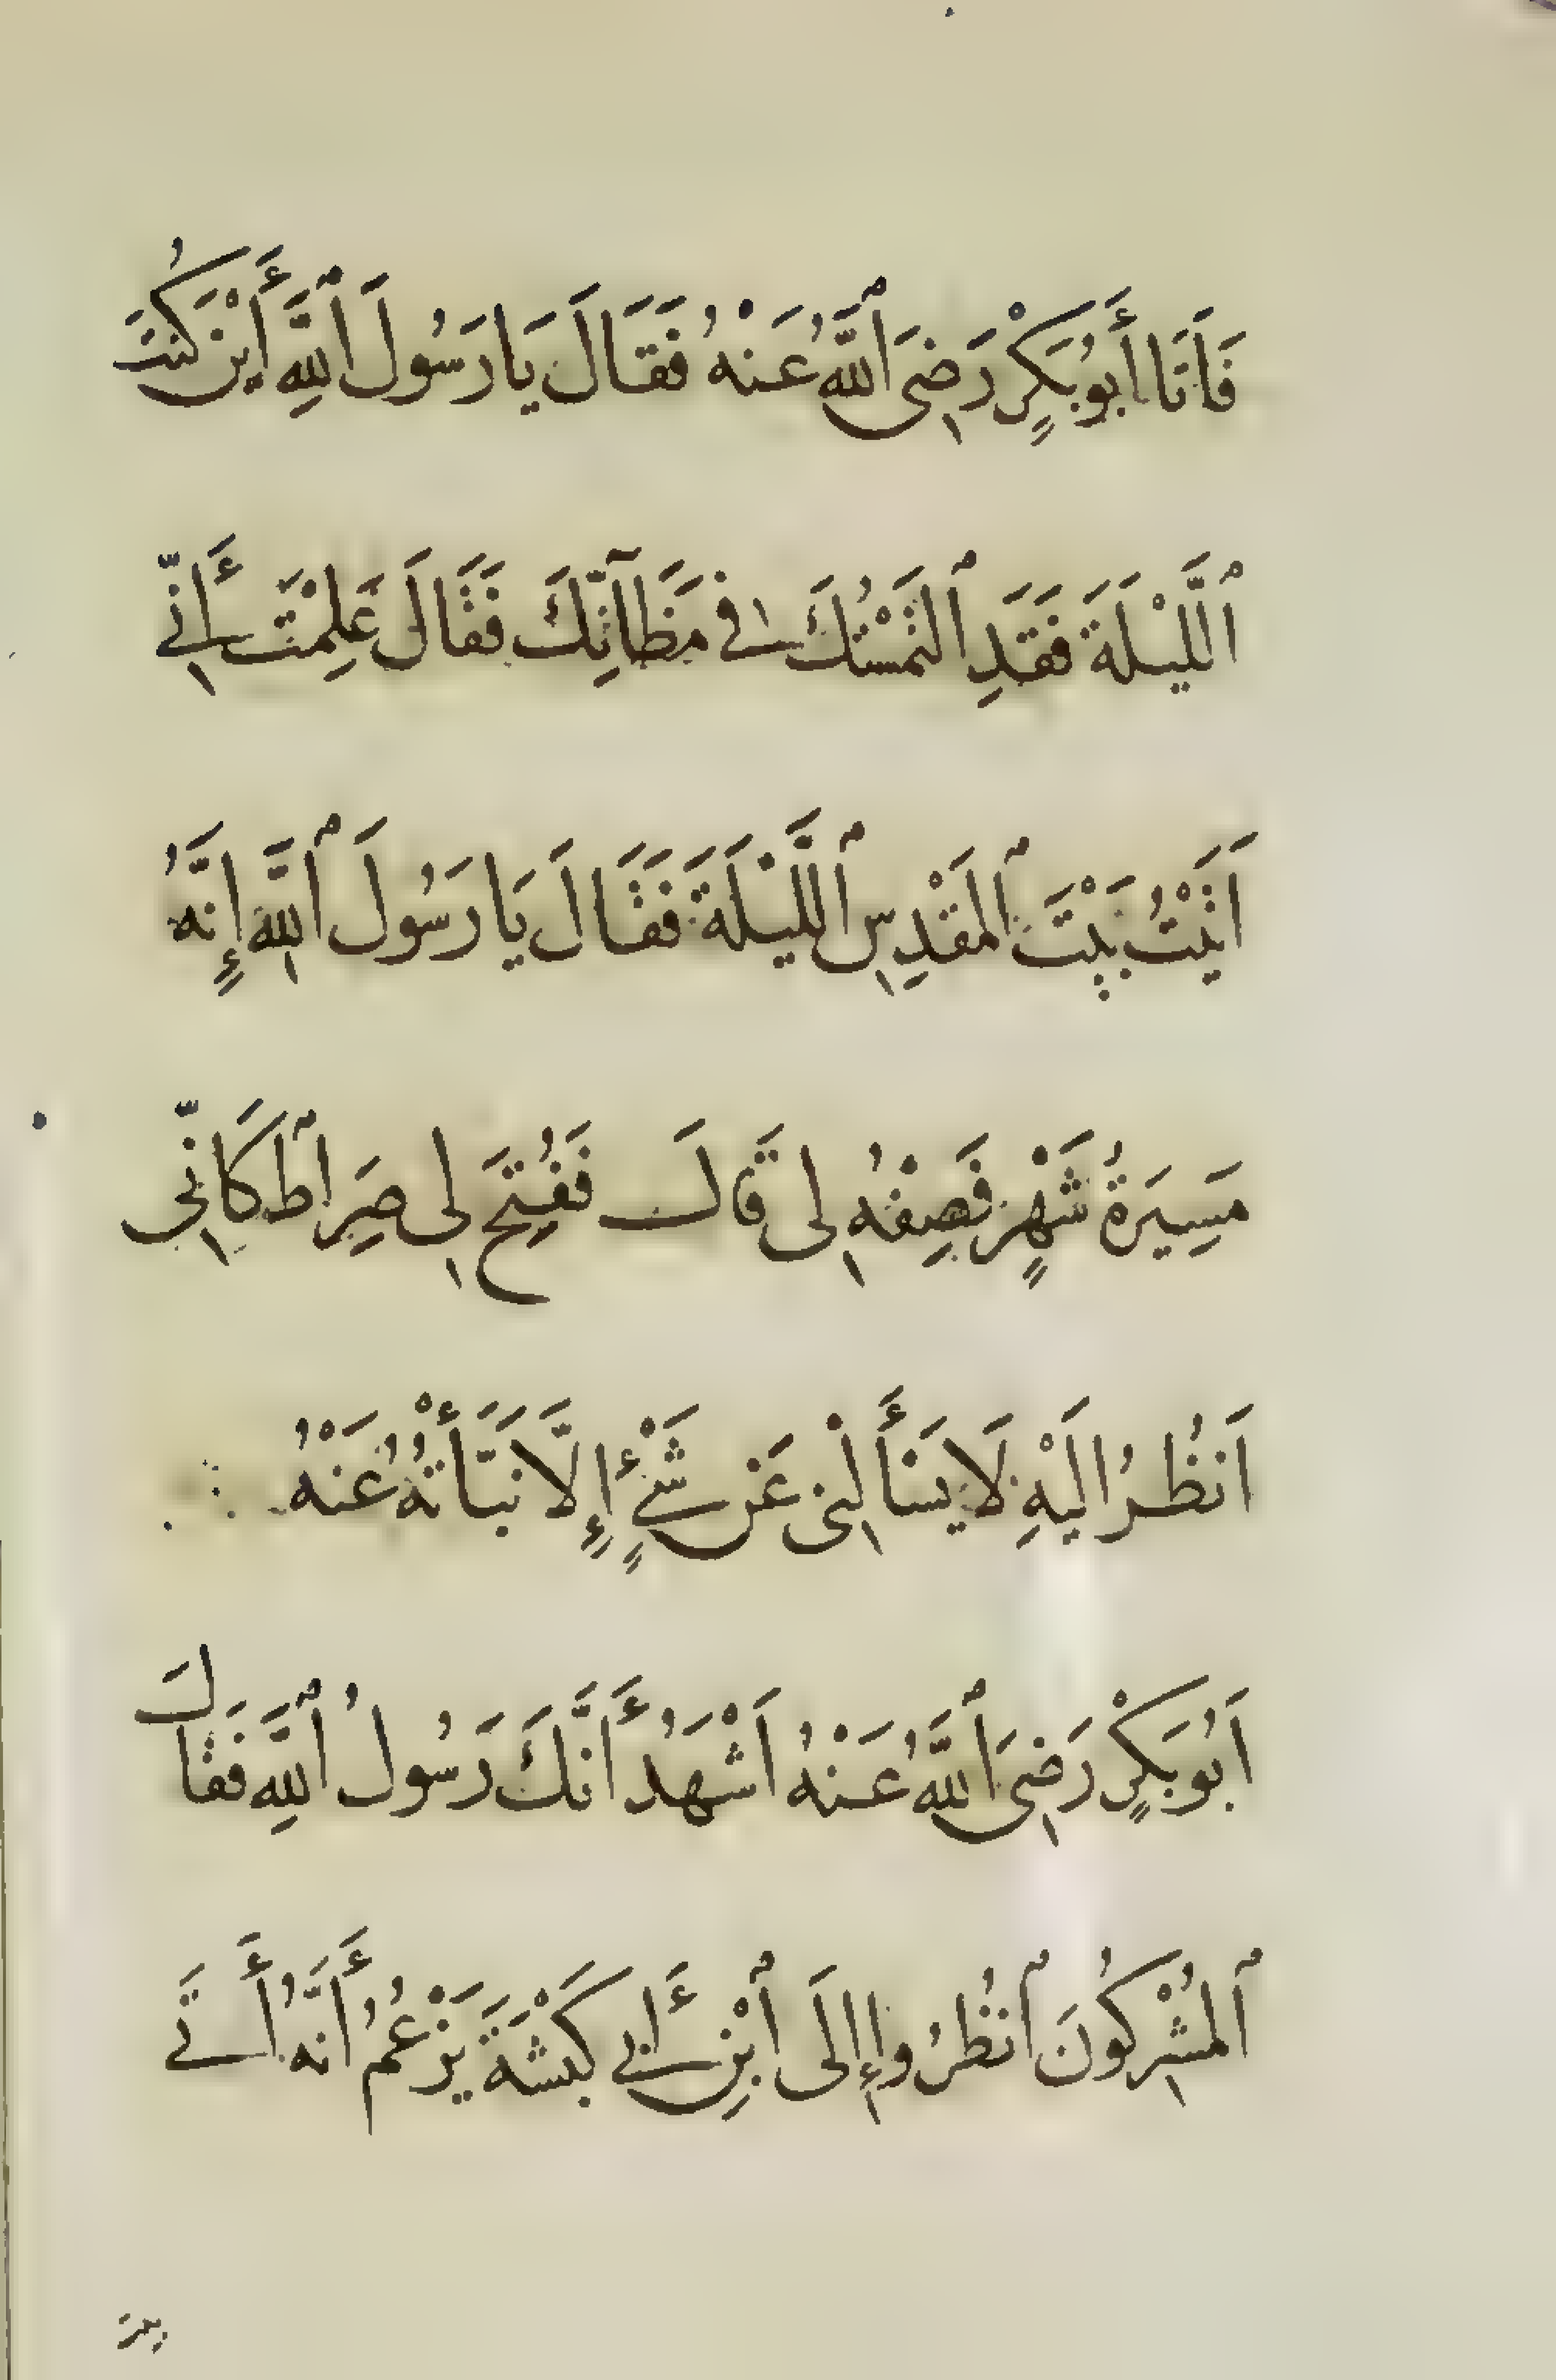 فَاَتَانَا أَبُوبَكْرٍ رَضِىَ ٱللَّهُ عَنْهُ فَقَالَ يَا رَسُولَ ٱللَّهِ أَيْنَ كُنْتَ
ٱللَّيْلَةَ فَقَدِ ٱلْتَمَسْتُكَ فِى مَظَآنِّكَ فَقَالَ عَلِمْتَ أَنِّى
اَتَيْتُ بَيْتَ ٱلمَقْدِسِ ٱللَّيْلَةَ فَقَالَ يَا رَسُولَ ٱللَّهِ إِنَّهُ
مَسِيَرةُ شَهْرٍ فَصِفْهُ لِى قَالَ فَفُتِحَ لِى صِرَاطٌ كَاَنِّى
اَنْظُرُ اِلَيْهِ لَا يَسْأَلُنِى عَنْ شَىْءٍ إِلَّا نَبَّأْتُهُ عَنْهُ
اَبُوبَكْرٍ رَضِىَ ٱللَّهُ عَنْهُ اَشْهَدُ أَنَّكَ رَسُولُ ٱللَّهِ فَقَالَ
ٱلمُشْرِكُونَ ٱنْظُرُوا إِلَى ٱبْنِ أَبِى كَبْشَةَ يَزْعُمُ أَنَّهُ أَتَى